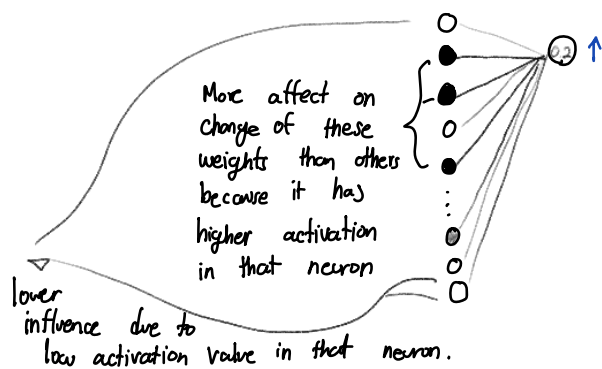 0.2
More affect on
change of these
weights than others
because it has
higher activation
in that neuron
lower
influence due to
low activation value in that neuron.